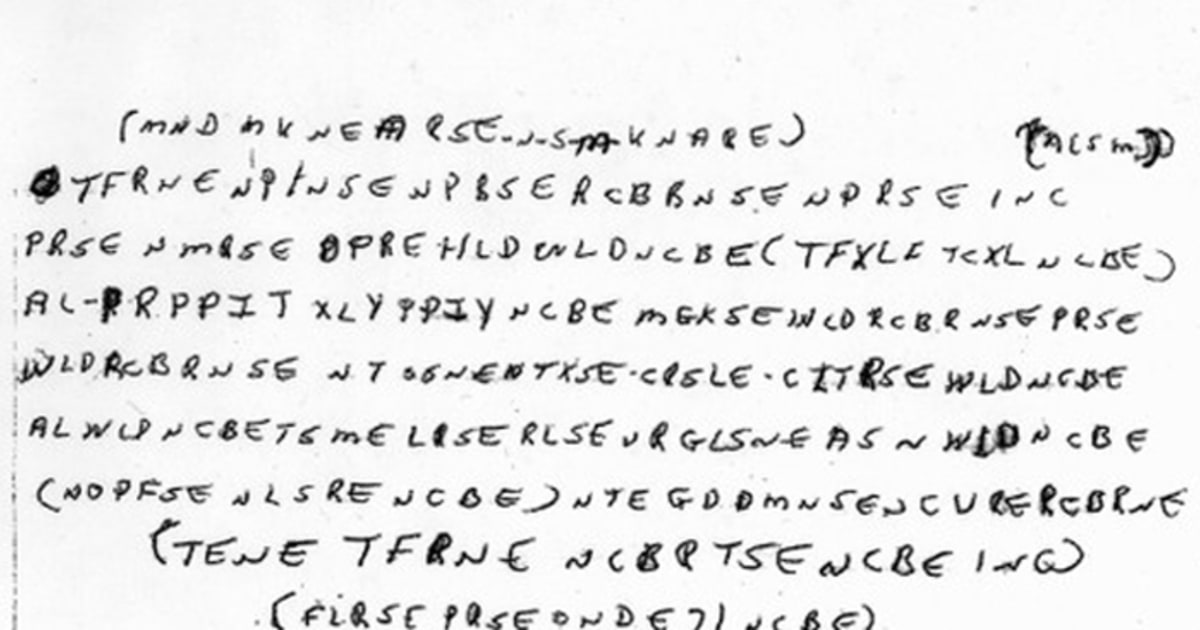 (MND MKNEARSE-N-S-M-KNARE) (ACSM)
TFRNENPINSENPBSERCBBNSENPRSEINC
PRSENMRSEOPREHLDWLDNCBE(TFXLFTCXLNCBE)
AL-PRPPITXLYPPIYNCBEMGKSEWLDRCBRNSEPRSE
WLDRCBRNSENTSGNENTXSE-CRSLE-CITRSEWLDNCBE
ALWLPNCBETSMELRSERLSEURGLSNEASNWLDNCBE
(NOPFSENLSRENCBE)NTEGDDMNSENCURERCBRNE
(TENETFRNENCBRTSENCBEINC)
(FLRSEPRSEONDE71NCBE)